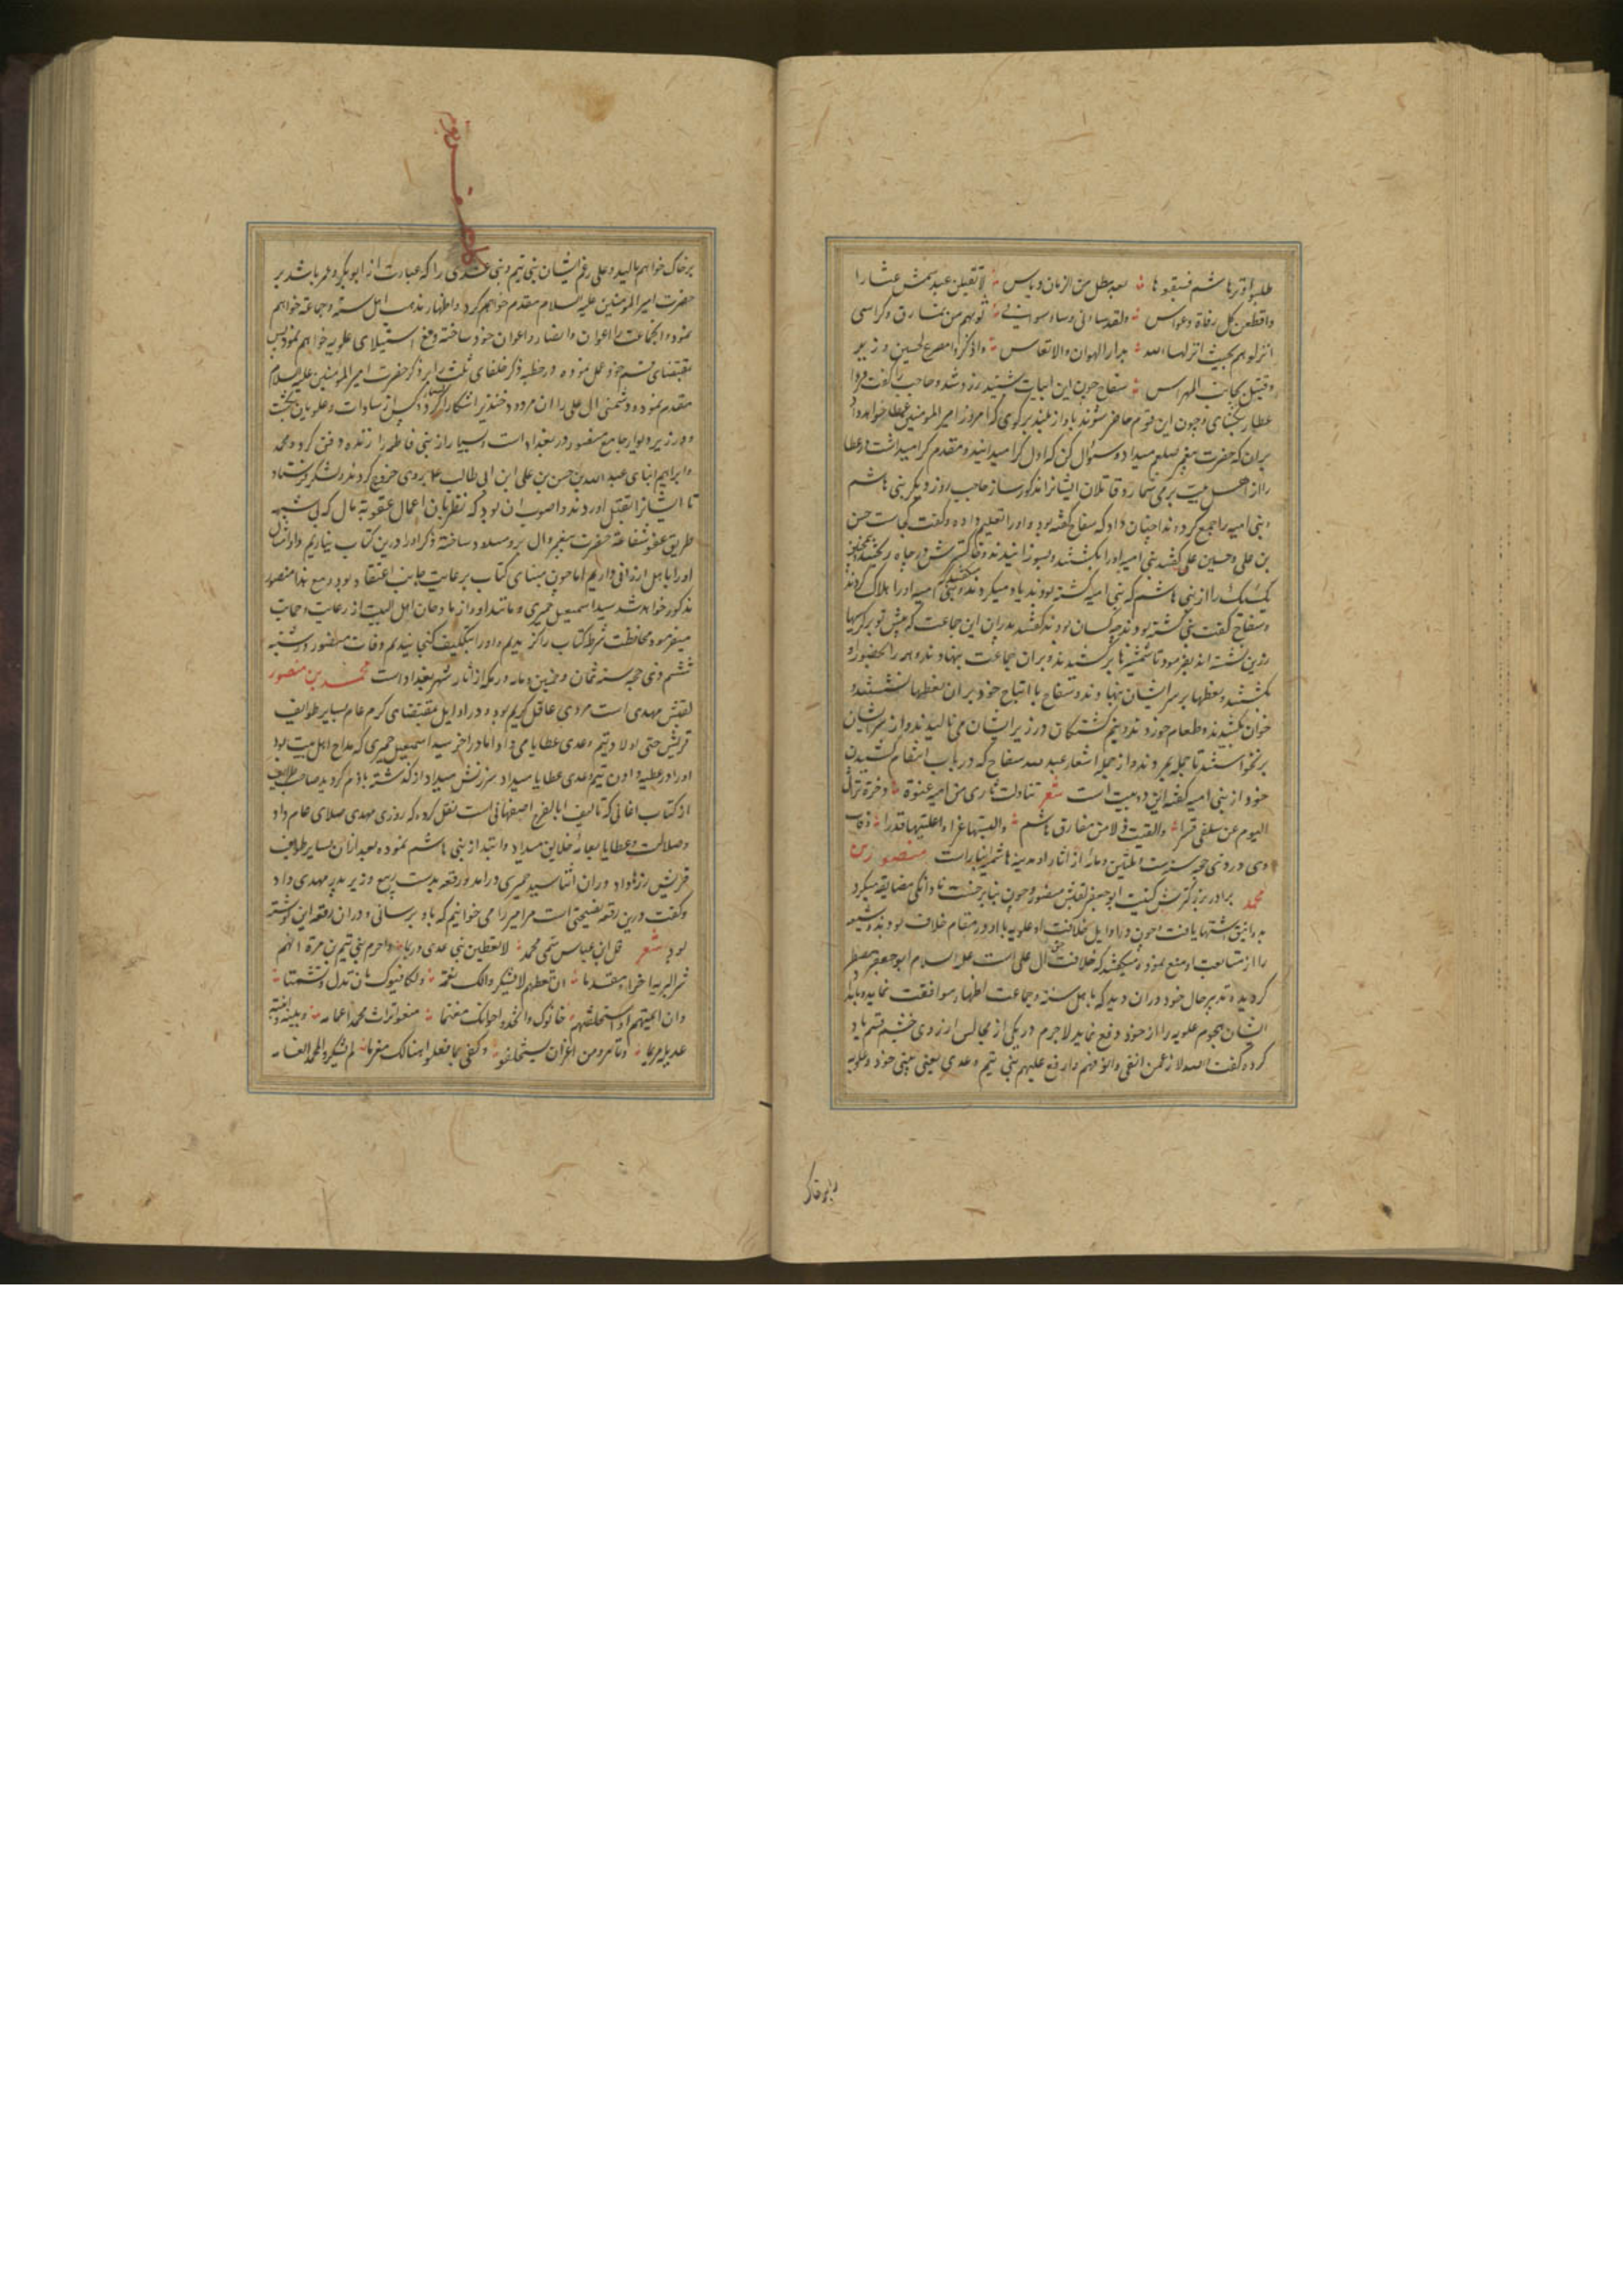 طلبوا وتر هاشم فبقوها بعد میل من الزمان ویاس لا تقیلن عبد شمس عثارا
واقطعن کل رقلة وغراس ولقد ساءنی وساء سوائی قربهم من نمارق وکراسی
انزلوهم بحیث انزلها الله بدار الهوان والاتعاس واذکروا مصرع الحسین وزید
وقتیل بجانب المهراس سفاح چون این ابیات شنید زرد شد وحاجب را گفت فردا
عطا ببخشای وچون این قوم حاضر شوند باواز بلند بر گوی که امروز امیر المؤمنین عطا خواهد داد
بران که حضرت پیغمبر صلعم میداد وسؤال کن که اول کرا میدانید ومقدم کرا میداشت در عطا
را از اهل بیت بر می شمار وقاتلان ایشانرا مذکور ساز حاجب روز دیگر بنی هاشم
وبنی امیه را جمع کرد وندا چنان داد که سفاح گفته بود واورا تعلیم داده وگفت کجاست حسن
بن علی وحسین علی گفتند بنی امیه اورا بکشتند وبسوزانیدند وخاکسترش در چاه ریختند
یک یک را از بنی هاشم که بنی امیه کشته بودند یاد میکرد ومیگفتند که بنی امیه اورا هلاک کردند
وسفاح گفت چه کسان بودند گفتند پدران این جماعت که پیش تو بر کرسیها
زرین نشسته اند بفرمود تا شمشیرها بر کشیدند وبران جماعت نهادند وهمه را بحضور او
بکشتند ونطعها بر سر ایشان نهادند وسفاح با اتباع خود بران نطعها نشستند و
خوان بکشیدند وطعام خوردند ونیم کشتگان در زیر ایشان می نالیدند واز سر ایشان
بر نخواستند تا جمله بمردند واز جمله اشعار عبد الله سفاح که در باب انتقام کشیدن
خود از بنی امیه گفته این دو بیت است شعر تناولت ثاری من امیه عنوة وخرة تراثی
الیوم عن سلفی قسرا والقیت ذلا من مفارق هاشم والبستها عزا واعلیتها قدرا وفات
وی در ذی حجه سنه ست وثلثین ومائة از اثار او مدینه هاشم انبار است منصور بن
محمد برادر بزرگترش کنیت ابو جعفر لقبش منصور وچون بنا بر خست تا دانگی مضایقه میکرد
بدوانیقی اشتهار یافت وچون در اوایل خلافت او علویه با او در مقام خلاف بودند وشیعه
را از متابعت او منع نموده میگفتند که خلافت حق آل علی است علیه السلام ابو جعفر مضطر
گردیده تدبیر حال خود دران دید که با اهل سنة وجماعت اظهار موافقت نماید وبامداد
ایشان هجوم علویه را از خود دفع نماید لاجرم در یکی از مجالس از روی خشم قسم یاد
کرد وگفت والله لارغمن انفی وانوفهم وارفع علیهم بنی تیم وعدی یعنی بینی خود وعلویه
بر خاک
بر خاک خواهم مالید وعلی رغم ایشان بنی تیم وبنی عدی را که عبارت از ابوبکر وعمر باشد بر
حضرت امیر المؤمنین علیه السلام مقدم خواهم کرد واظهار مذهب اهل سنة وجماعة خواهم
نمود وانجماعت را اعوان وانصار واعوان خود ساخته دفع استیلای علویه خواهم نمود پس
بمقتضای قسم خود عمل نموده در خطبه ذکر خلفای ثلث را بر ذکر حضرت امیر المؤمنین علیه السلام
مقدم نموده ودشمنی ال علی را ان مردود خنزیر اشکارا کرد وبسیار از سادات وعلویان بکشت
ودر زیر دیوار جامع منصور در بغداد است وبسیار از بنی فاطمه را زنده دفن کرد ومحمد
وابراهیم ابنای عبد الله بن حسن بن علی ابن ابی طالب ع بر وی خروج کردند ولشکر فرستاد
تا ایشانرا بقتل اوردند واصوب ان بود که نظر بان اعمال عقوبة مال که بی شبهه
طریق عفو شفاعة حضرت پیغمبر وال برو مسدود ساخته ذکر اورا درین کتاب نیاریم وامثال
اورا باهل ارزانی داریم اما چون مبنای کتاب بر عایت جانب اعتقاد بود ومع هذا منصور
مذکور خواهد شد سید اسمعیل حمیری ومانند او را از مادحان اهل البیت از رعایت وحمایت
میفرمود محافظت شرط کتاب را گزیدیم واورا بتکلیف گنجانیدیم وفات منصور در شنبه
ششم ذی حجه سنه ثمان وخمسین ومائه در مکه از اثار شهر بغداد است محمد بن منصور
لقبش مهدی است مردی عاقل کریم بود ودر اوایل بمقتضای کرم عام بسایر طوایف
قریش حتی اولاد تیم وعدی عطایا می داد اما در اخر سید اسمعیل حمیری که مداح اهل بیت بود
اورا در عطیه دادن تیم وعدی عطایا میداد سرزنش میداد از گذشته نادم گردید صاحب
از کتاب اغانی که تالیف ابا الفرج اصفهانی است نقل کرده که روزی مهدی صلای عام داد
وصلات وعطایا بعامه خلایق میداد وابتدا از بنی هاشم نموده بعد ازان بسایر طوایف
قریش زرها داد دران اثنا سید حمیری درامد ورقعه بدست ربیع وزیر پدر مهدی داد
وگفت درین رقعه نصیحتی است مر امیر را می خوانیم که باو برسانی ودران رقعه این نوشته
بود شعر قل لابن عباس سمی محمد لا تعطین بنی عدی درهما واحرم بنی تیم بن مرة انهم
شر البریه اخرا ومقدما ان تعطهم لا یشکروا لک نعمة ویکافئوک بان تذم وتشتما
وان ائتمنتهم او استعملتهم خانوک واتخذوا خراجک مغنما منعوا تراث محمد اعمامه وبنیه وابنته
عدیلة مریما وتامروا من غیر ان یستخلفوا وکفی بما فعلوا هنالک مغرما لم یشکروا لمحمد انعامه